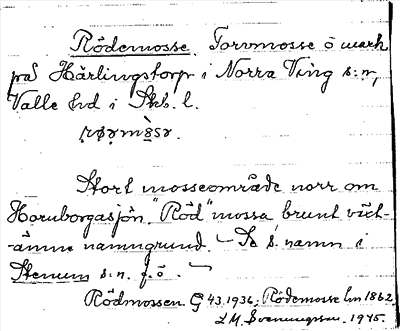 Rödemosse. Torvmosse ö mark
på Härlingstorp i Norra Ving s:n,
Valle hd i Skb. l.
Stort mosseområde norr om
Hornborgasjön. "Röd" mossa brunt växt-
-ämne namngrund. – Se s. namn i
Stenum s.n. f. ö. –
Rödmossen G 43.1936; Rödemosse lm 1862.
L M. Svenungsson. 1945.